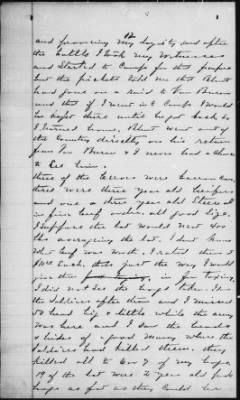 12
and favoring my loyalty and after
the battle I took my witnesses
and started to Camp for this purpose
but the pickets told me that Blunt
had gone on a raid to Van Buren
and that if I went into Camp I would
be kept there until he got back so
I turned home, Blunt went out of
the Country directly on his return
from Van Buren & I never had a chance
to see him.
three of the were barren Cows
three were three year old heifers
and one a three year old Steer all
in fine beef order. all good size.
I suppose the lot would net 400
lbs averaging the lot. I dont know
what beef was worth. I rated them
for Cash, that is just the way I would
give them in for taxing,
I did not see the hogs taken. I saw
the Soldiers after them and I missed
50 head big & little while the army
was here and I saw the heads
& hides of a good many where the
Soldiers had killed them. they
killed all to 6 or 7 of my hogs
19 of the lot were 2 year old
hogs as fat as they could be